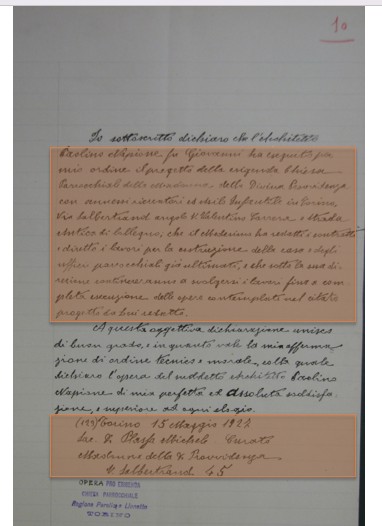 10
Io sottoscritto dichiaro che l'Architetto
Paolino Napione fu Giovanni ha eseguito per
mio ordine il progetto della erigenda Chiesa
Parrocchiale della Madonna della Divina Provvidenza
con annessi ricreatori ed asilo Infantile in Torino,
Via Salbertrand angolo V. Valentino Carrera e Strada
Antica di Collegno; che il Medesimo ha redatti i contratti
e diretti i lavori per la costruzione della casa e degli
uffici parrocchiali già ultimati, e che sotto la sua di-
rezione continueranno a svolgersi i lavori fino a com-
pleta esecuzione delle opere contemplate nel citato
progetto da lui redatto.
A questa oggettiva dichiarazione unisco
di buon grado, e in quanto vale la mia afferma
zione di ordine tecnico e morale, colla quale
dichiaro l'opera del suddetto Architetto Paolino
Napione di mia perfetta ed assoluta soddisfa-
zione, e superiore ad ogni elogio.
Torino 15 Maggio 1927
Michele Curato
Madonna della D. Provvidenza
V. Salbertrand 45
OPERA PRO ERIGENDA
CHIESA PARROCCHIALE
Regione Parella e Lionetto
TORINO